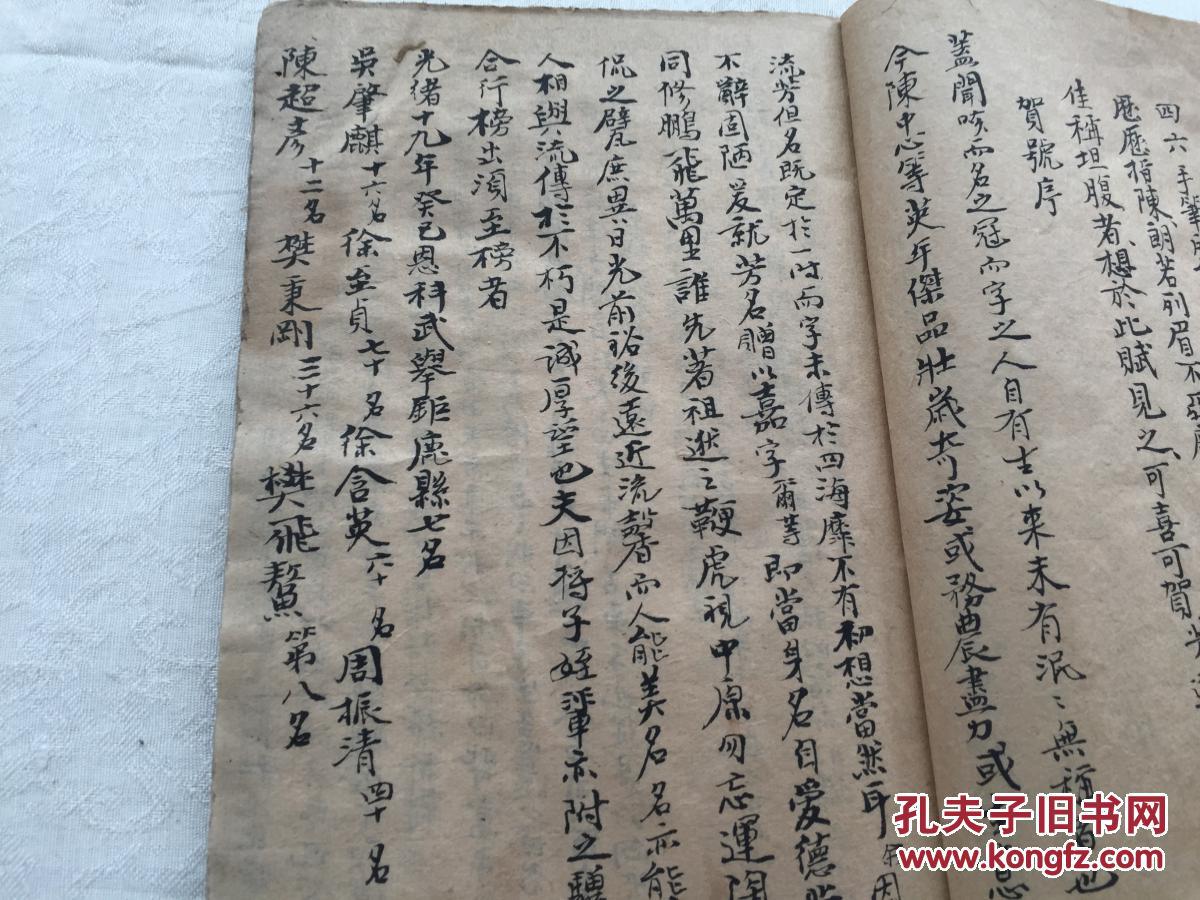 四六手
歷歷將陳朗若列眉不
佳稱坦腹者想於此賦見之可喜可賀
賀號序
蓋聞咳而名之冠而字之人自有生以來未有泯〻無稱者也
今陳中心等英年傑品壯歲奇姿或務農盡力或
流芳但名既定於一時而字未傳於四海靡不有初想當然耳 余因
不辭固陋爰就芳名贈以嘉字爾等即當身名自愛德
同修鵬飛萬里誰先著祖逖之鞭虎視中原勿忘運陶
侃之甓庶異日光前裕後遠近流馨而人能美名名亦能
人相與流傳於不朽是誠厚望也夫因將子姪輩亦附之驥
合行榜出須至榜者
光緒十九年癸巳恩科武舉鉅鹿縣七名
吳肇麒 十六名 徐至貞 七十名 徐含英 六十名 周振清 四十名
陳超彥 十二名 樊秉剛 三十六名 樊飛鰲 第八名
孔夫子旧书网
www.kongfz.com